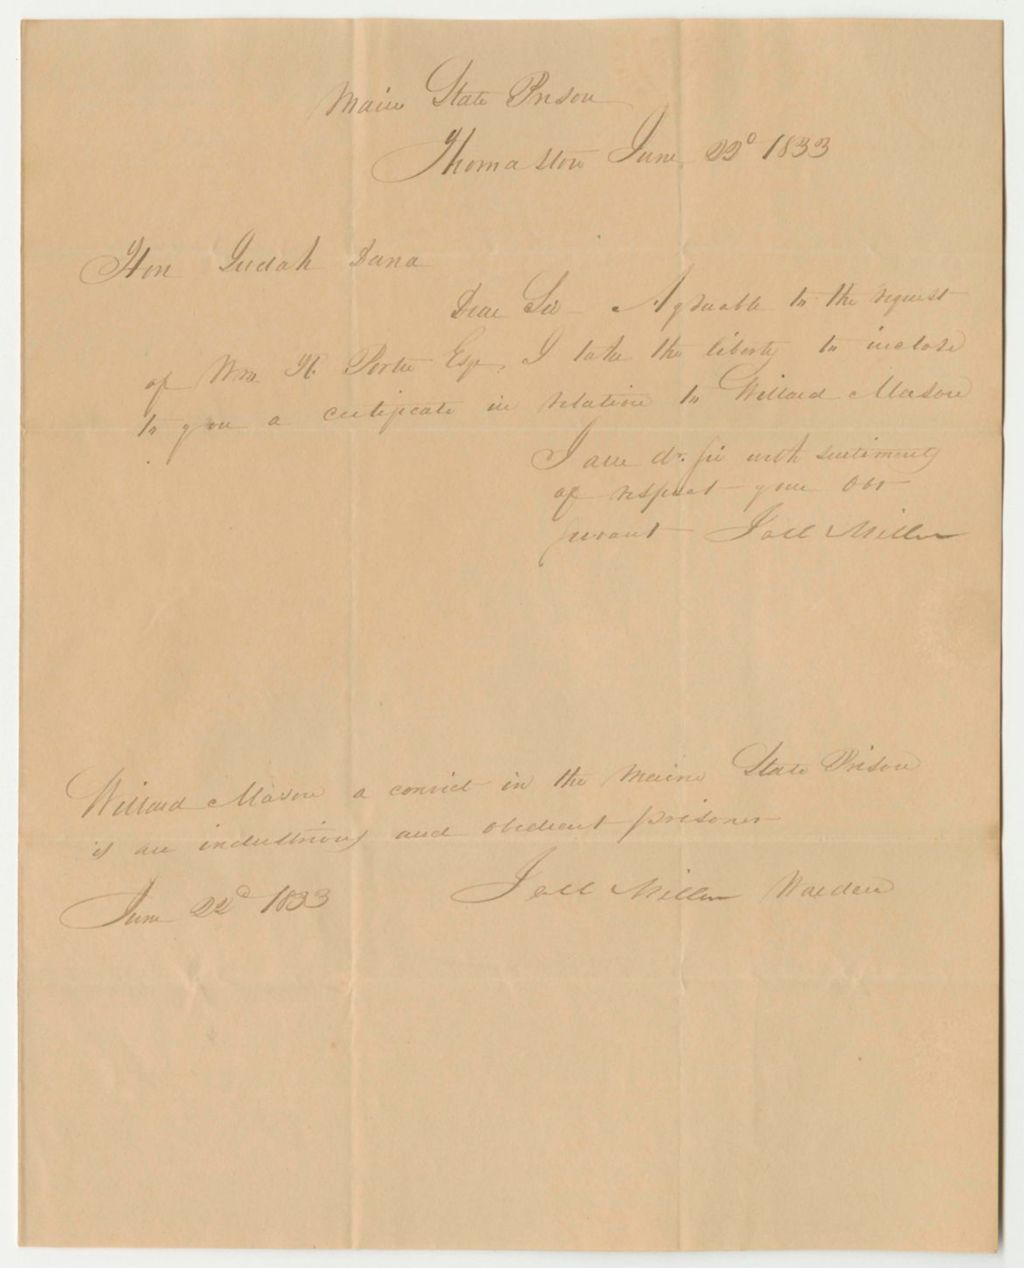 Maine State Prison
Thomaston June 22d 1833
Hon Judah Dana
Dear Sir - Agreeable to the request
of Wm H. Porter Esqr, I take the liberty to inclose
to you a certificate in relation to Willard Mason
I am dr. Sir with sentiments
of respect your Obt
Servant Joel Miller
Willard Mason a convict in the Maine State Prison
is an industrious and obedient prisoner
June 22d 1833 Joel Miller Warden